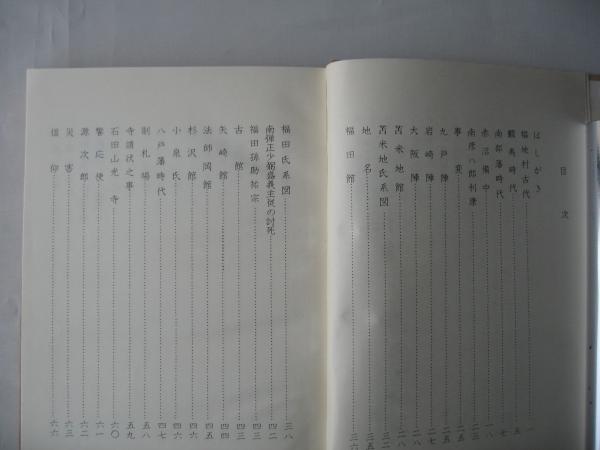 目次
はしがき
福地村古代……一
蝦夷時代……五
南部藩時代……七
赤沼備中……一八
南彦八郎利康……二三
事変……二五
九戸陣……二六
岩崎陣……二七
大阪陣……二八
苫米地館……二八
苫米地氏系図……三二
地名……三五
福田館……三六
福田氏系図……三八
南弾正少弼盛義主従の討死……四二
福田孫助祐宗……四三
古館……四三
矢崎館……四四
法師岡館……四四
杉沢館……四五
小泉氏……四六
八戸藩時代……四七
制札場……五八
寺請状之事……五九
石田山光寺……六〇
饗応使……六一
源次郎……六二
災害……六三
信仰……六六